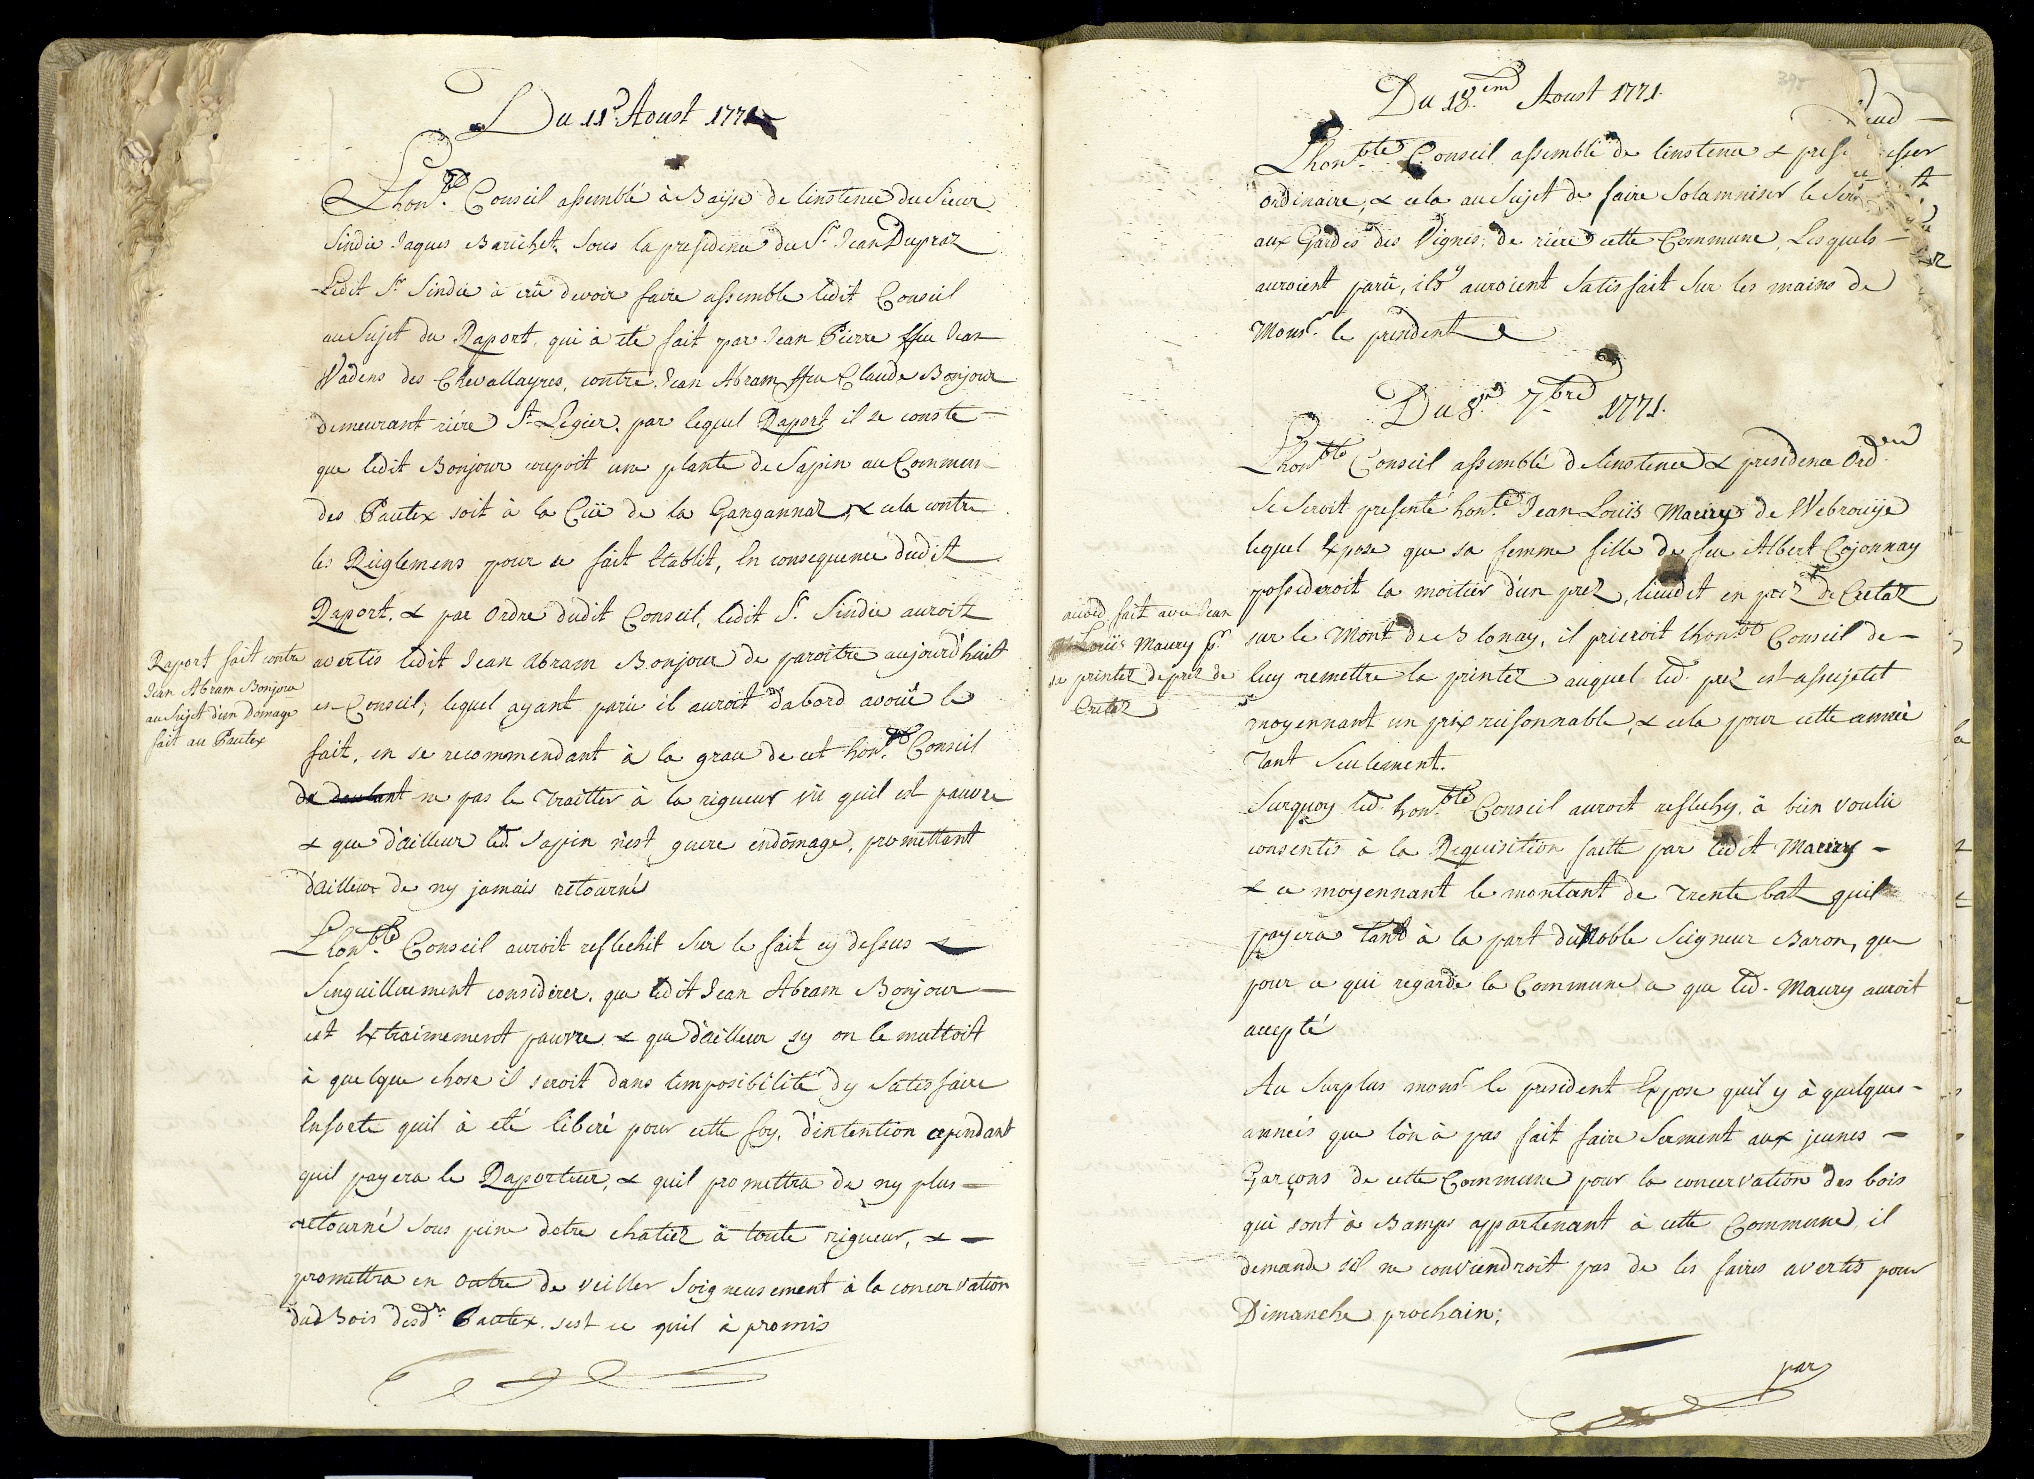 Du 11.e Aoust 1771
Lhon.ble Conseil assemblé à Baÿse de linstence du Sieur
Sindic Jaques Barichet, sous la presidence du S.r Jean Dupraz
Ledit S.r Sindic à crû devoir faire assemble ledit Conseil
au Sujet du Raport, qui à eté fait par Jean Pierre ffeu Jean
Vadens des Chevallayres, contre Jean Abram ffeu Claude Bonjour
demeurant riére S.t Legier, par lequel Raport il se conste
que ledit Bonjour coupoit une plante de Sapin au Commun
des Pautex soit à la Cüe de la Gangannaz, & cela contre
les Rèiglemens pour ce fait Etablit, En consequence dudit
Raport, & par Ordre dudit Conseil, ledit S.r Sindic auroitz
avertis ledit Jean Abram Bonjour de paroitre aujourd'huit
en Conseil, lequel ayant parû il auroit d'abord avoüé le
fait, en se recommendant à la grace de cet hon.ble Conseil
de ne pas le Traitter à la rigueur vû quil est pauvre
& que d'ailleur led. Sapin n'est guere endomage, promettant
d'ailleur de ny jamais retourné
Lhon.ble Conseil auroit reflechit sur le fait cy dessus &
Singuilierement considerer, que ledit Jean Abram Bonjour
est Extraimement pauvre & que d'ailleur sy on le mettoit
à quelque chose il seroit dans l'imposibilité dy Satisfaire
Ensorte quil à eté liberé pour cette foy, d'intention cependant
quil payera le Raporteur, & quil promettra de ny plus
retourné sous peine detre chatiez à toute rigueur, &
promettra en outre de veiller soigneusement à la concervation
dud Bois desd.ts Pautex, sest ce quil à promis
Raport fait contre
Jean Abram Bonjour
au Sujet d'un Domage
fait au Pautex
Du 18.eme Aoust 1771.
Lhon.ble Conseil assemblé de linstence &
ordinaire, & cela au Sujet de faire Solamniser le
aux Gardes des Vignes, de riére cette Commune, Lesquels
auroient parû, ils y auroient Satisfait sur les mains de
Mons.r le president
Du 8.e 7.bre 1771.
Lhon.ble Conseil assemblé de linstence & presidence Ord.re
Se Seroit presenté hon.te Jean Louïs Maury de Webrouÿe
lequel Expose que sa femme fille de feu Albert Cojonnay
possederoit la moitier d'un prez, lieudit en prez de Cretaz
sur le Mont de Blonay, il prieroit lhon.ble Conseil de
luy remettre la printez auquel led. prez est assujetit
moyennant un prix reisonnable, & cela pour cette année
Tant Seulement.
Surquoy led. hon.ble Conseil auroit reflechy, à bien voulü
consentir à la Requisition faitte par ledit Maury
& ce moyennant le montant de Trente batz quil
payera tant à la part du Noble Seigneur Baron, que
pour ce qui regarde la Commune, ce que led. Maury auroit
accepté
Au Surplus mons.r le president Expose quil y à quelques
années que l'on à pas fait faire Serment aux jeunes
Garçons de cette Commune pour la concervation des bois
qui sont à Bamps appartenant à cette Commune, il
demande sil ne conviendroit pas de les faires avertir pour
Dimanche prochain;
par
acord fait avec Jean
Louïs Maury p.r
sa printez de prez de
Cretaz